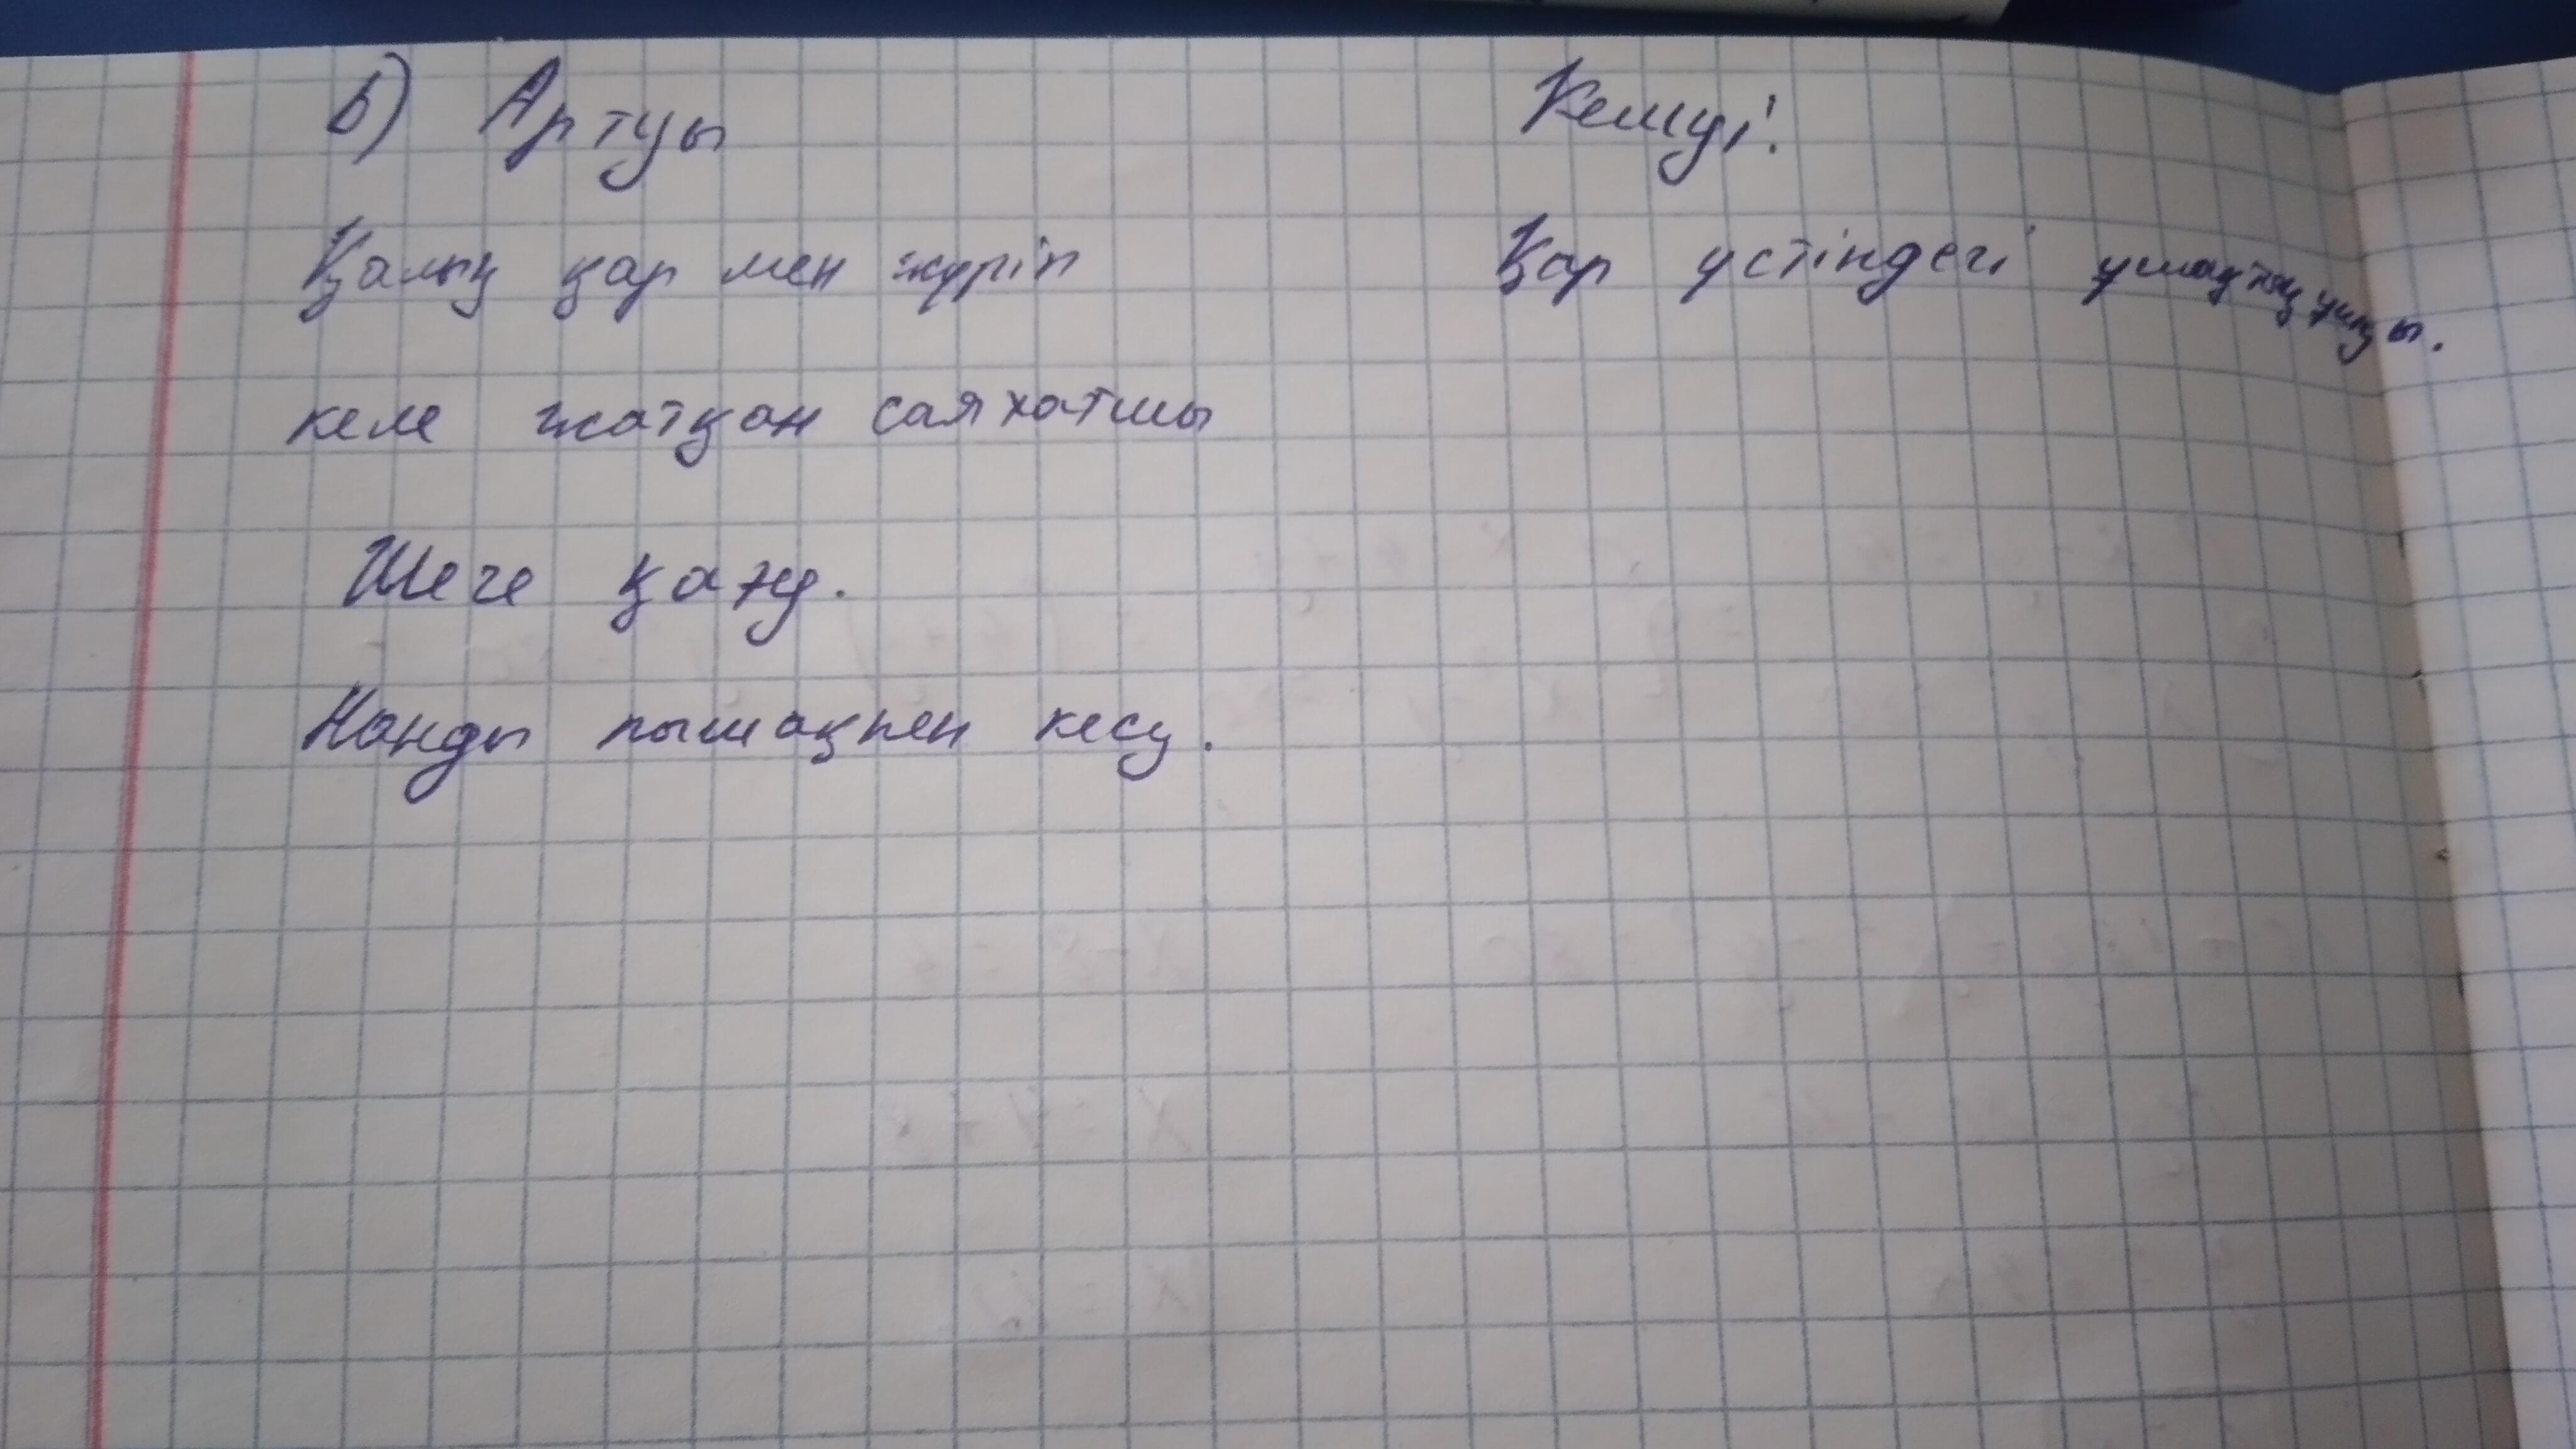 b) Артуы
Кемуі:
Қалың қар мен жүріп
Қар үстіндегі ұшақтың ұшуы.
келе жатқан саяхатшы
Шеге қағу.
Нанды пышақпен кесу.